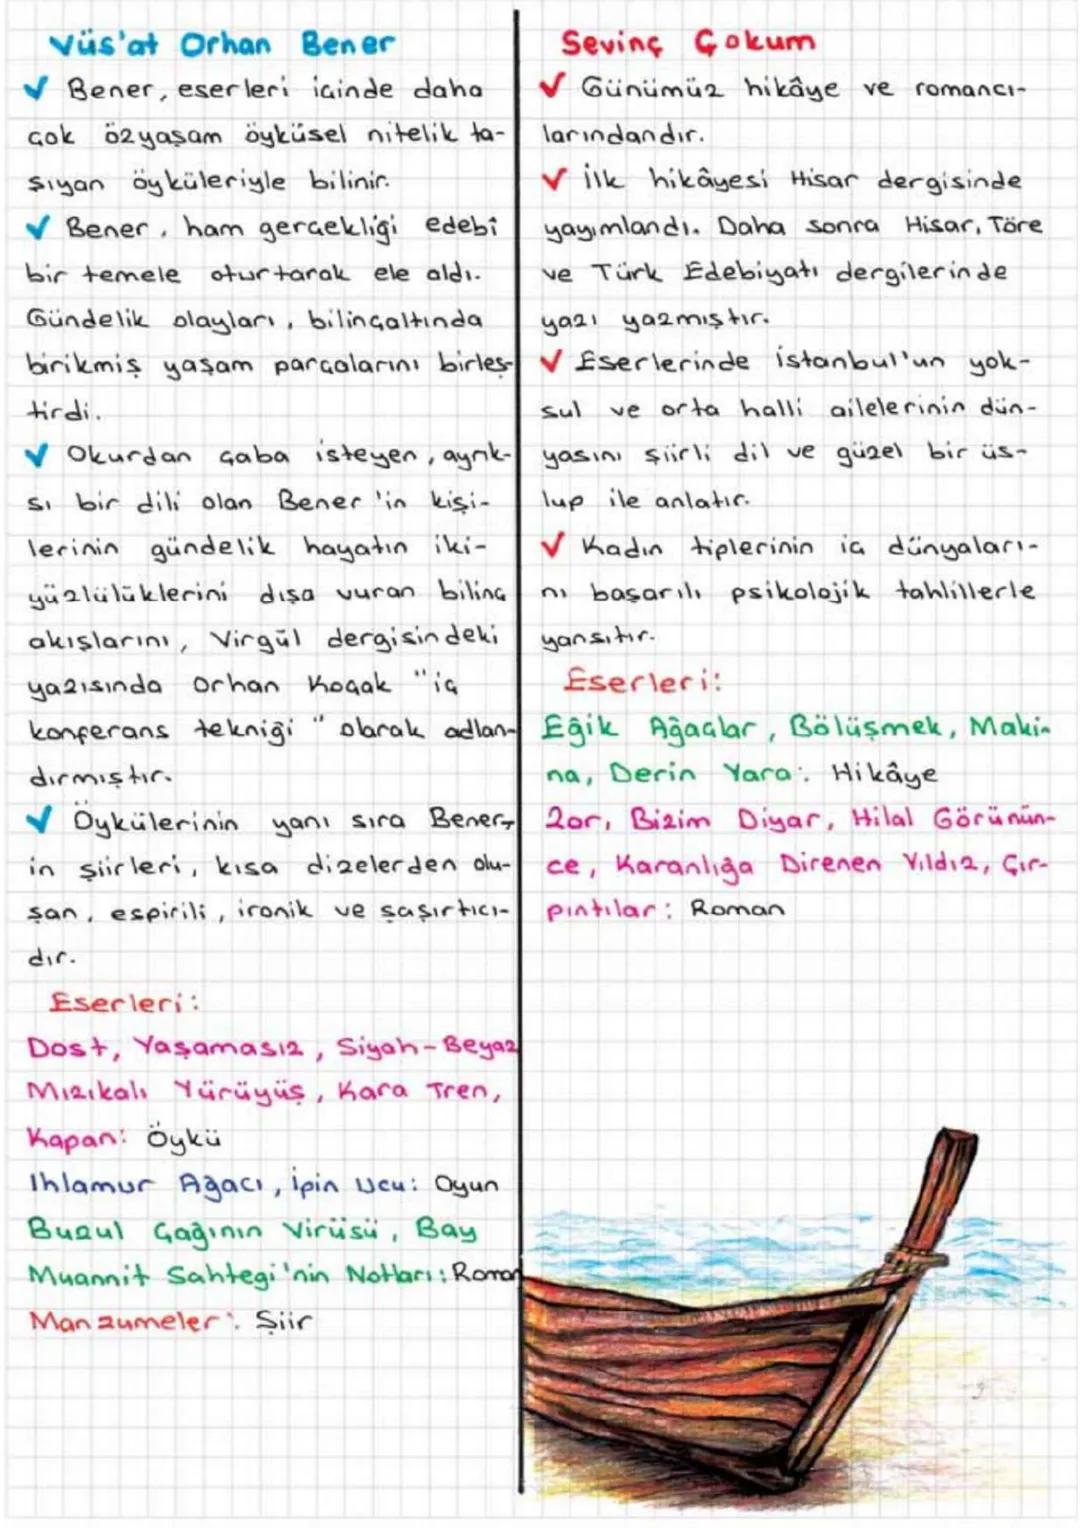 Vüs'at Orhan Bener
✓ Bener, eserleri içinde daha
çok özyaşam öyküsel nitelik ta-
şıyan öyküleriyle bilinir.
✓ Bener, ham gerçekliği edebî
bir temele oturtarak ele aldı.
Gündelik olayları, bilinçaltında
birikmiş yaşam parçalarını birleş-
tirdi.
✓ Okurdan çaba isteyen, ayrık-
sı bir dili olan Bener'in kişi-
lerinin gündelik hayatın iki-
yüzlülüklerini dışa vuran bilinç
akışlarını, Virgül dergisindeki
yazısında Orhan Koçak "iç
konferans tekniği" olarak adlan-
dırmıştır.
✓ Öykülerinin yanı sıra Bener,
in şiirleri, kısa dizelerden olu-
şan, espirili, ironik ve şaşırtıcı-
dır.
Eserleri:
Dost, Yaşamasız, Siyah-Beyaz
Mızıkalı Yürüyüş, Kara Tren,
Kapan: Öykü
Ihlamur Ağacı, İpin Ucu: Oyun
Buzul Çağının Virüsü, Bay
Muannit Sahtegi'nin Notları: Roman
Manzumeler: Şiir
Sevinç Çokum
✓ Günümüz hikâye ve romancı-
larındandır.
✓ İlk hikâyesi Hisar dergisinde
yayımlandı. Daha sonra Hisar, Töre
ve Türk Edebiyatı dergilerinde
yazı yazmıştır.
✓ Eserlerinde İstanbul'un yok-
sul ve orta halli ailelerinin dün-
yasını şiirli dil ve güzel bir üs-
lup ile anlatır.
✓ Kadın tiplerinin iç dünyaları-
nı başarılı psikolojik tahlillerle
yansıtır.
Eserleri:
Eğik Ağaçlar, Bölüşmek, Maki-
na, Derin Yara: Hikâye
Zor, Bizim Diyar, Hilal Görünün-
ce, Karanlığa Direnen Yıldız, Çır-
pıntılar: Roman